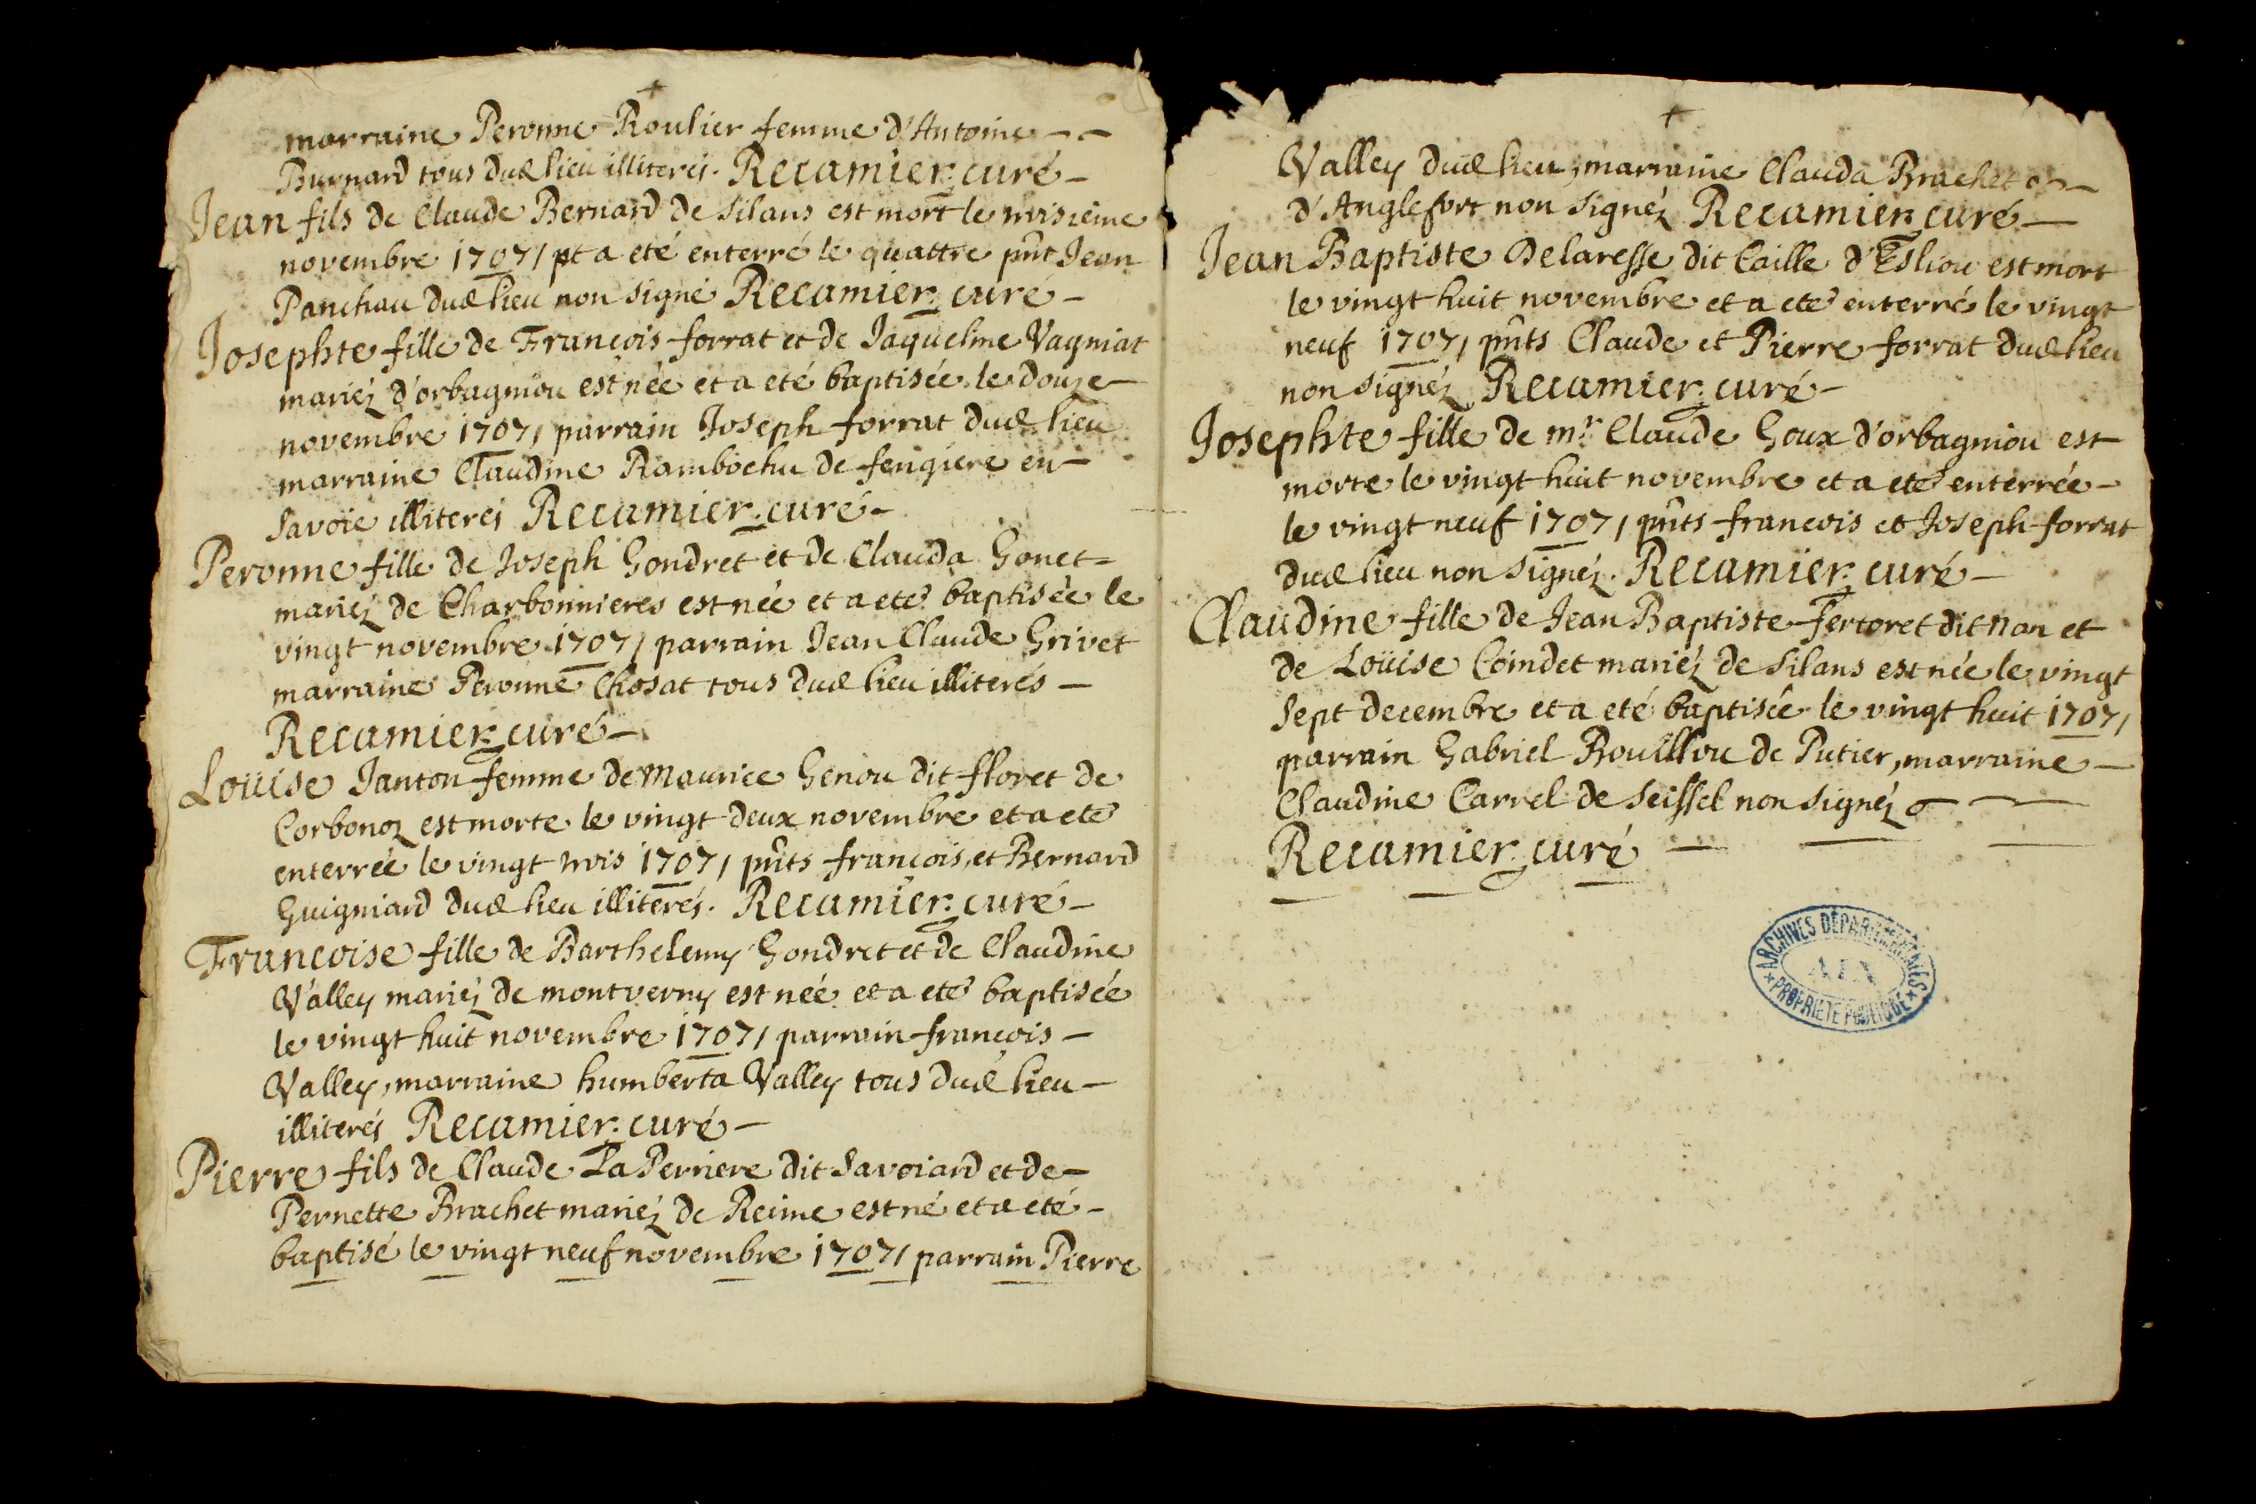 marraine Peronne Roulier femme d'Antoine
Burnard tous dud lieu illiterés. Recamier curé
Jean fils de Claude Bernard de Silans est mort le troisieme
novembre 1707 / et a eté enterré le quattre pnt Jean
Panchau dud lieu non signé Recamier curé
Josephte fille de Francois forrat et de Jaqueline Vagniat
mariéz d'orbagniou est née et a eté baptisée le douze
novembre 1707 / parrain Joseph forrat dud lieu
marraine Claudine Rambochu de fengiere en
Savoie illiterés Recamier curé
Peronne fille de Joseph Gondret et de Clauda Gonet
mariéz de Charbonnieres est née et a eté baptisée le
vingt novembre 1707 / parrain Jean Claude Grivet
marraine Peronne Chosat tous dud lieu illiterés
Recamier curé
Loüise Janton femme de Maurice Genou dit floret de
Corbonoz est morte le vingt deux novembre et a eté
enterrée le vingt trois 1707 / pnts francois et Bernard
Guigniard dud lieu illiterés. Recamier curé
Francoise fille de Barthelemy Gondret et de Claudine
Valley mariéz de montverny est née et a eté baptisée
le vingt huit novembre 1707 / parrain francois
Valley, marraine humberta Valley tous dud lieu
illiterés Recamier curé
Pierre fils de Claude La Perriere dit Savoiard et de
Pernette Brachet mariéz de Reime est né et a eté
baptisé le vingt neuf novembre 1707 / parrain Pierre
Valley dud lieu, marraine Clauda Brachet
d'Anglefort non signéz Recamier curé
Jean Baptiste Delaresse dit Caille d'Esliou est mort
le vingt huit novembre et a eté enterré le vingt
neuf 1707 / pnts Claude et Pierre forrat dud lieu
non signéz Recamier curé
Josephte fille de mr Claude Goux d'orbagniou est
morte le vingt huit novembre et a eté enterrée
le vingt neuf 1707 / pnts francois et Joseph forrat
dud lieu non signéz. Recamier curé
Claudine fille de Jean Baptiste Fertoret dit Nan et
de Loüise Coindet mariéz de Silans est née le vingt
Sept decembre et a eté baptisée le vingt huit 1707 /
parrain Gabriel Bouillou de Putier, marraine
Claudine Carrel de Seissel non signéz
Recamier curé
ARCHIVES DÉPARTEMENTALES
AIN
PROPRIÉTÉ PUBLIQUE